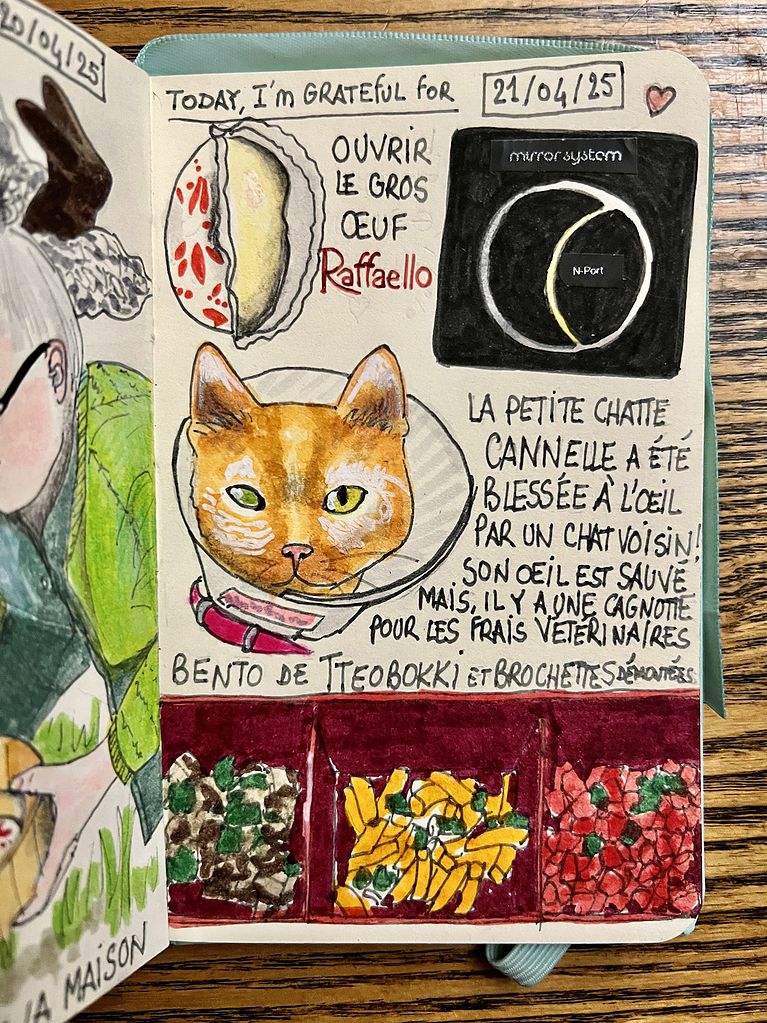 20/04/25
TODAY, I'm GRATEFUL FOR
21/04/25
OUVRIR
LE GROS
ŒUF
Raffaello
mirror system
N-Port
LA PETITE CHATTE
CANNELLE A ÉTÉ
BLESSÉE À L'OEIL
PAR UN CHAT VOISIN!
SON OEIL EST SAUVÉ
MAIS, IL Y A UNE CAGNOTTE
POUR LES FRAIS VÉTÉRINAIRES
BENTO DE TTEOBOKKI ET BROCHETTES DÉMONTÉES
LA MAISON